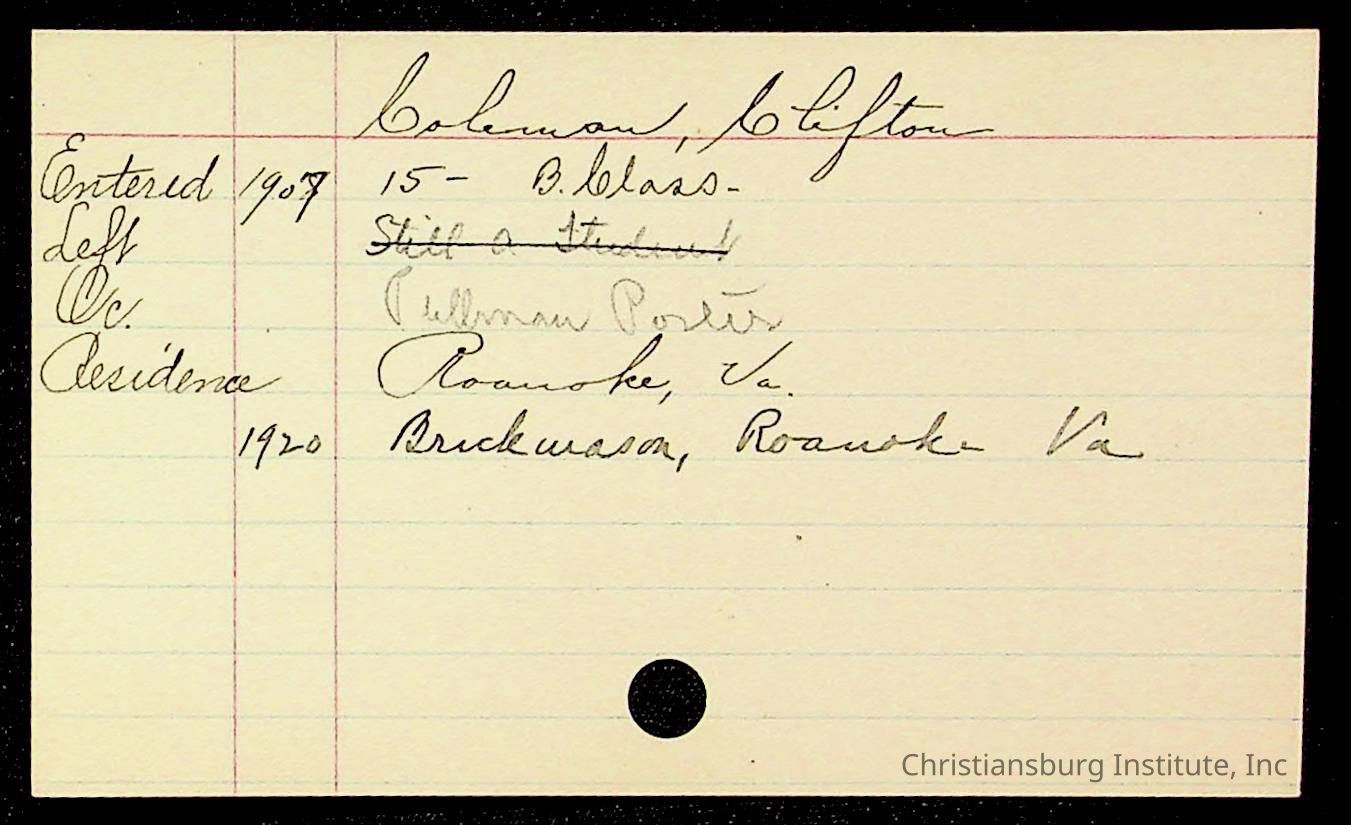 Coleman, Clifton
Entered 1907 15- B. Class-
Left Still a Student
Oc. Pullman Porter
Residence Roanoke, Va.
1920 Brickmason, Roanoke Va
Christiansburg Institute, Inc